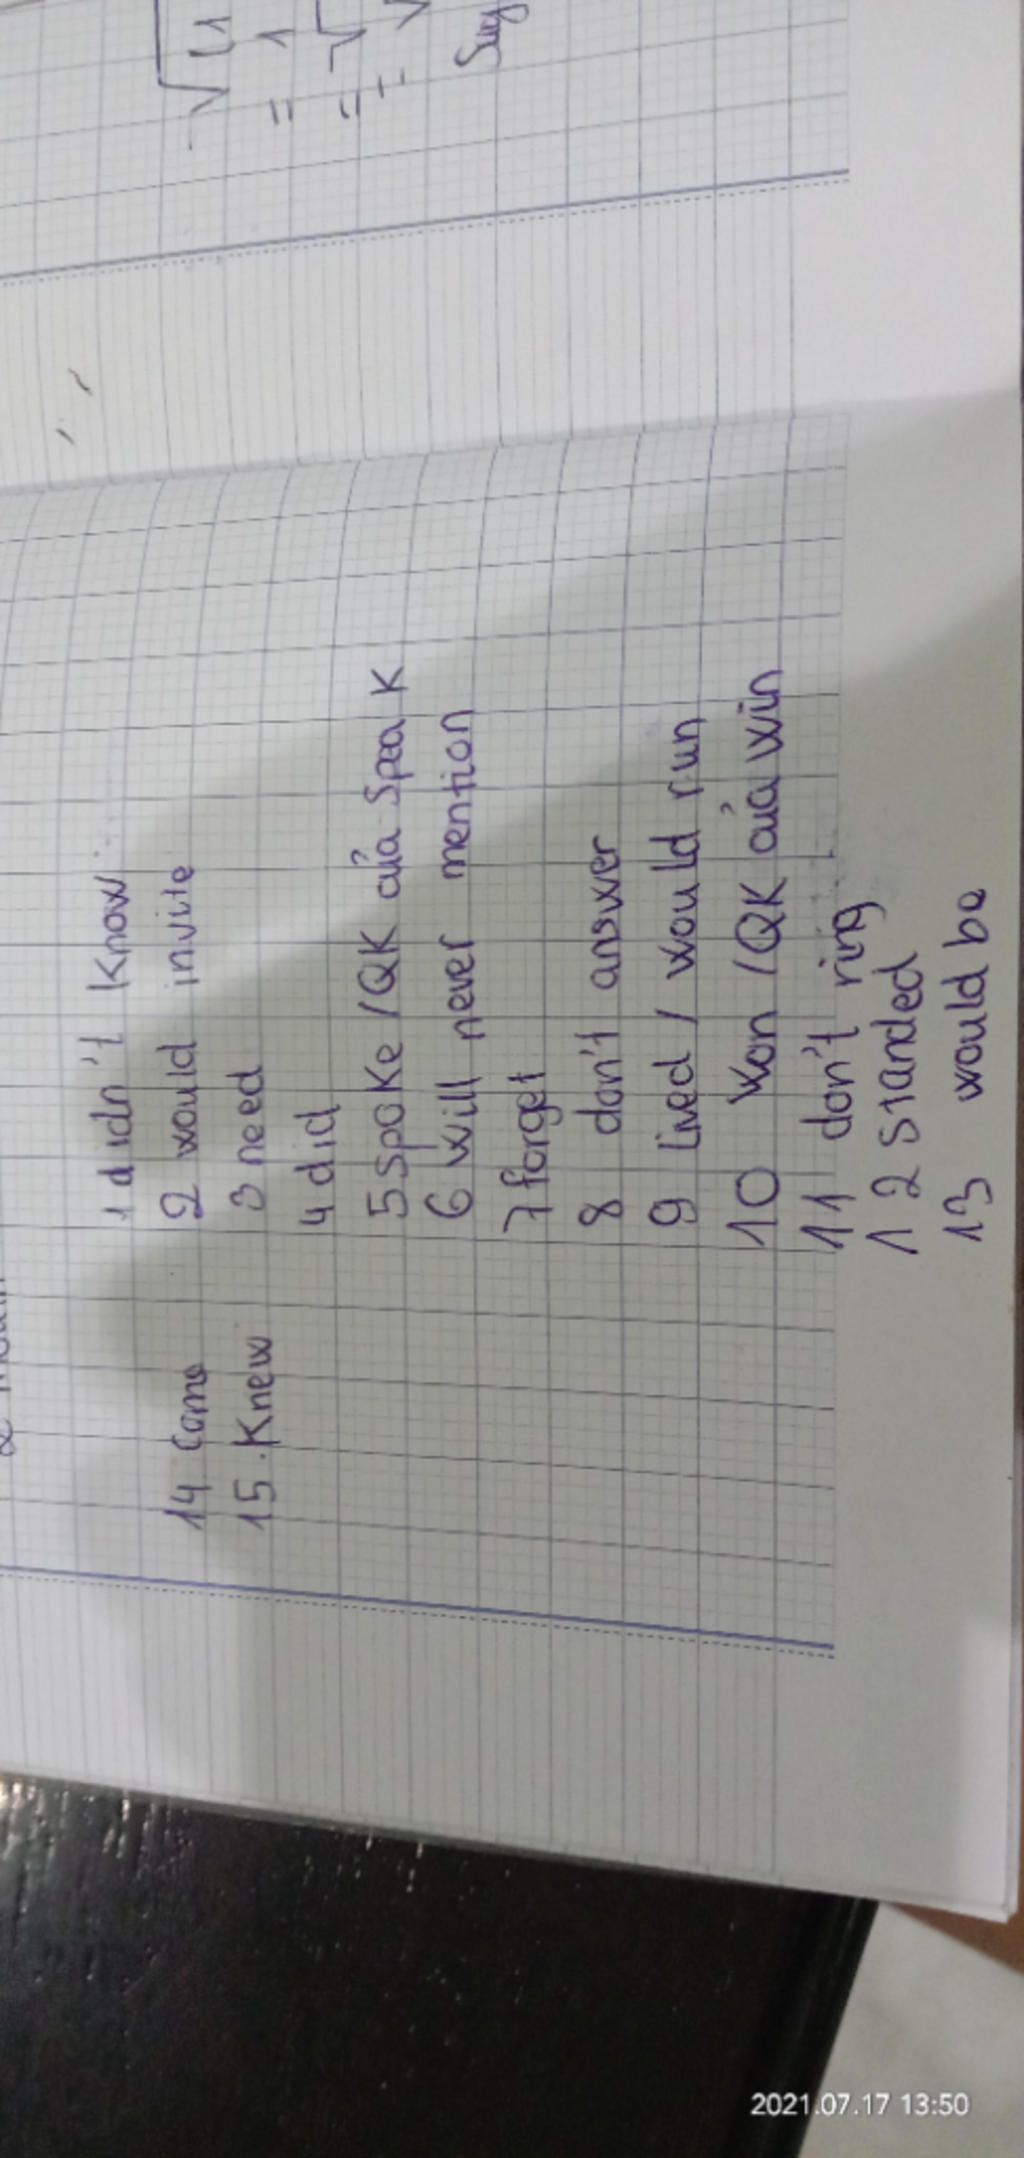 1 didn't know
2 would invite
3 need
4 did
5 spoke / QK của speak
6 will never mention
7 forget
8 don't answer
9 lived / would run
10 Won / QK của win
11 don't ring
12 standed
13 would be
14 Came
15. Knew
2021.07.17 13:50